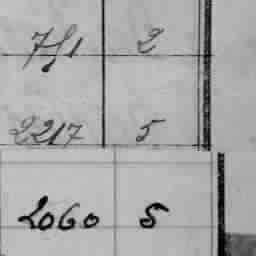 751 2
2217 5
2060 5